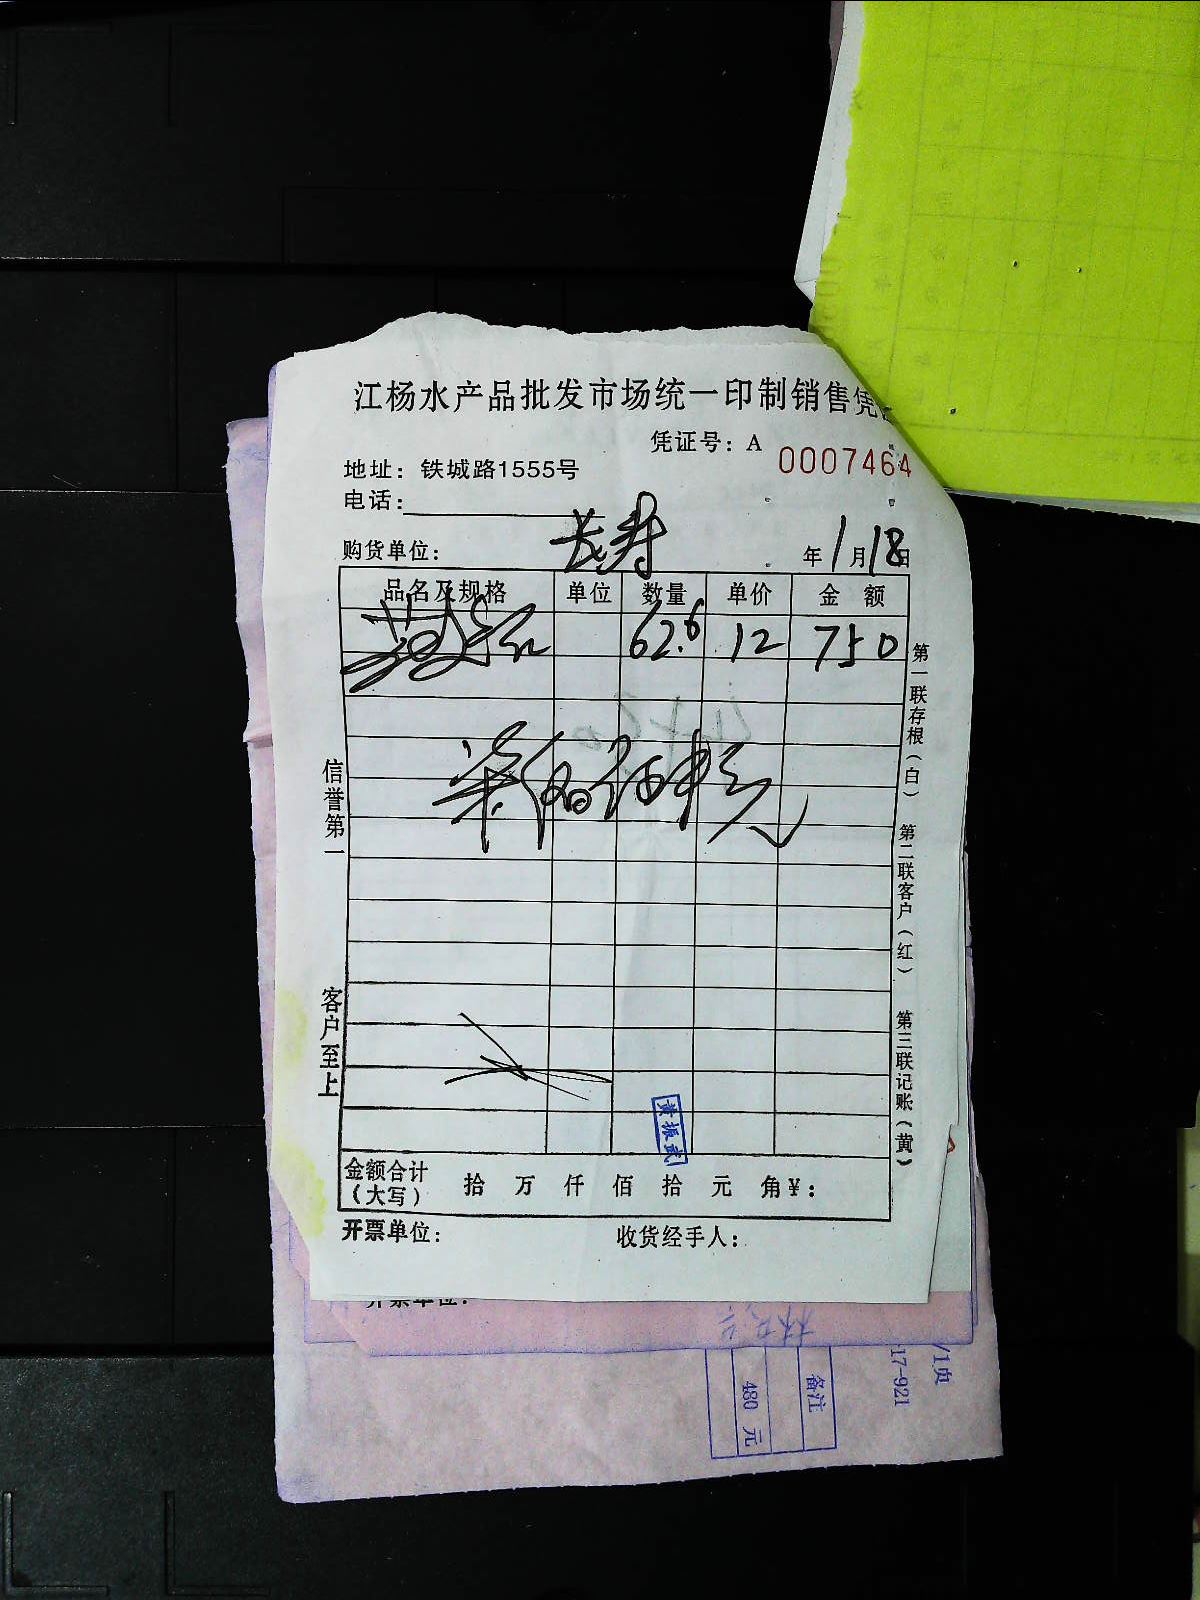 江杨水产品批发市场统一印制销售凭
凭证号：A 0007464
地址：铁城路1555号
电话：
购货单位： 长寿 年 1 月 18 日
品名及规格 单位 数量 单价 金 额
62.6 12 750
信誉第一
客户至上
第一联存根（白） 第二联客户（红） 第三联记账（黄）
黄振武
金额合计（大写） 拾 万 仟 佰 拾 元 角 ¥：
开票单位： 收货经手人：
开票单位：
备注
480 元
17-921
/1页